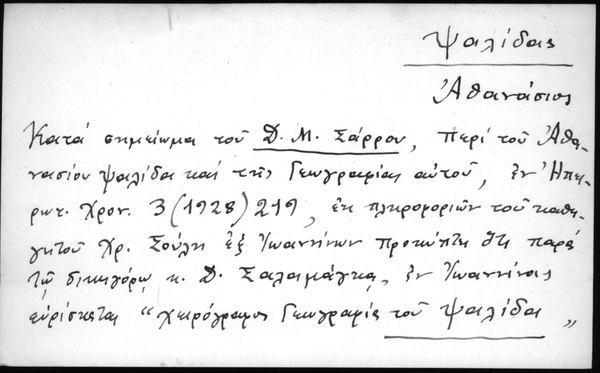 Ψαλίδας
Ἀθανάσιος
Κατά σημείωμα τοῦ Δ. Μ. Σάρρου, περί τοῦ Ἀθα-
νασίου Ψαλίδα καί τῆς Γεωγραφίας αὐτοῦ, ἐν Ἠπει-
ρωτ. Χρον. 3 (1928) 219, ἐκ πληροφοριῶν τοῦ καθη-
γητοῦ Χρ. Σούλη ἐξ Ἰωαννίνων προκύπτει ὅτι παρά
τῷ δικηγόρῳ κ. Δ. Σαλαμάγκᾳ, ἐν Ἰωαννίνοις
εὑρίσκεται "χειρόγραφος Γεωγραφία τοῦ Ψαλίδα"